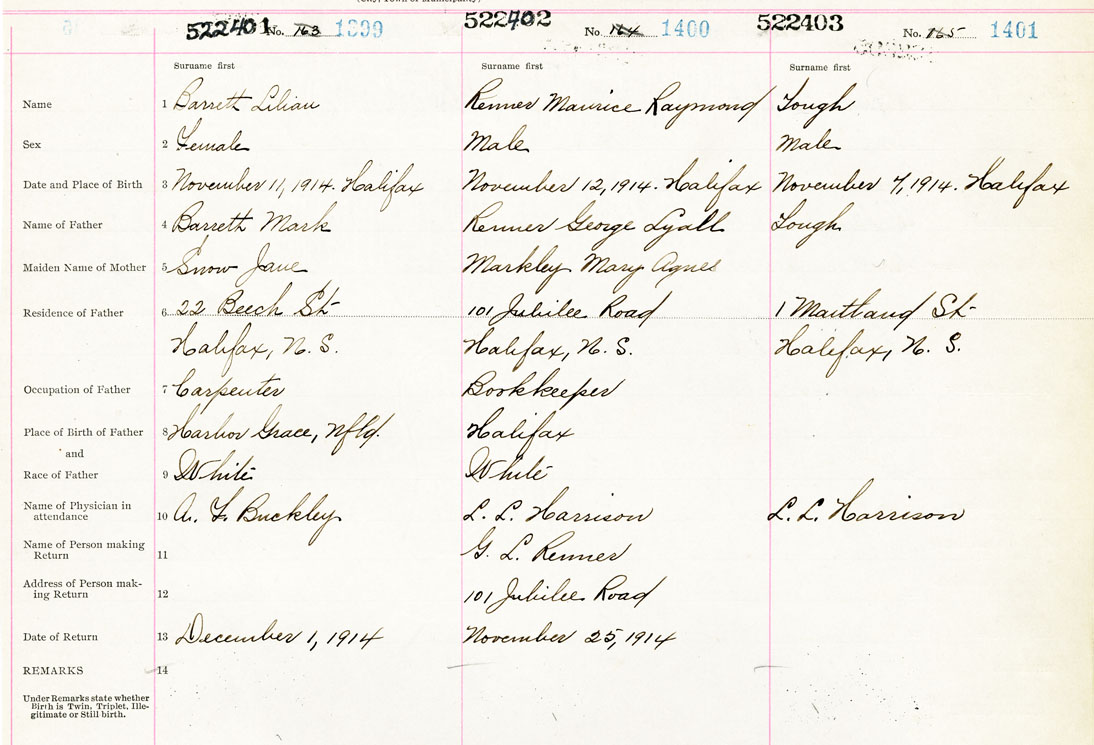 (City, Town or Municipality)
522401 No. 163 1399 522402 No. 164 1400 522403 No. 165 1401
Surname first Surname first Surname first
Name 1 Barrett Lilian Renner Maurice Raymond Tough
Sex 2 Female Male Male
Date and Place of Birth 3 November 11, 1914. Halifax November 12, 1914. Halifax November 7, 1914. Halifax
Name of Father 4 Barrett Mark Renner George Lyall Tough
Maiden Name of Mother 5 Snow Jane Markley Mary Agnes
Residence of Father 6 22 Beech St 101 Jubilee Road 1 Maitland St
Halifax, N. S. Halifax, N. S. Halifax, N. S.
Occupation of Father 7 Carpenter Bookkeeper
Place of Birth of Father 8 Harbor Grace, Nfld. Halifax
and
Race of Father 9 White White
Name of Physician in
attendance 10 A. F. Buckley L. L. Harrison L. L. Harrison
Name of Person making
Return 11 G. L. Renner
Address of Person mak-
ing Return 12 101 Jubilee Road
Date of Return 13 December 1, 1914 November 25, 1914
REMARKS 14
Under Remarks state whether
Birth is Twin, Triplet, Ille-
gitimate or Still birth.